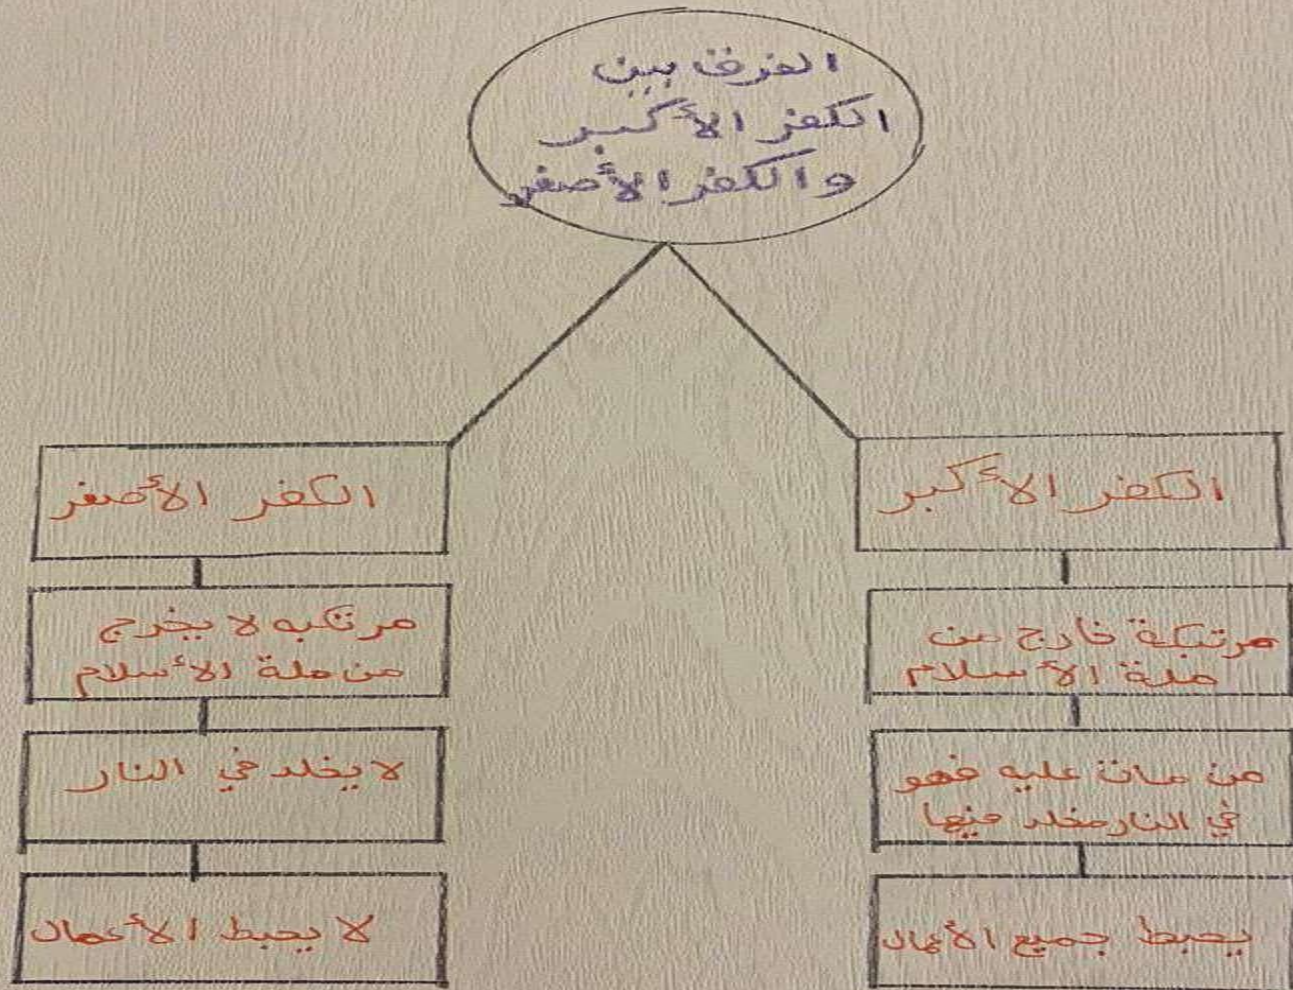 الفرق بين
الكفر الأكبر
والكفر الأصغر
الكفر الأكبر
مرتبكة خارج من
ملة الأسلام
من مات عليه فهو
في النار مخلد فيها
يحبط جميع الأعمال
الكفر الأصغر
مرتكبه لا يخرج
من ملة الأسلام
لا يخلد في النار
لا يحبط الأعمال